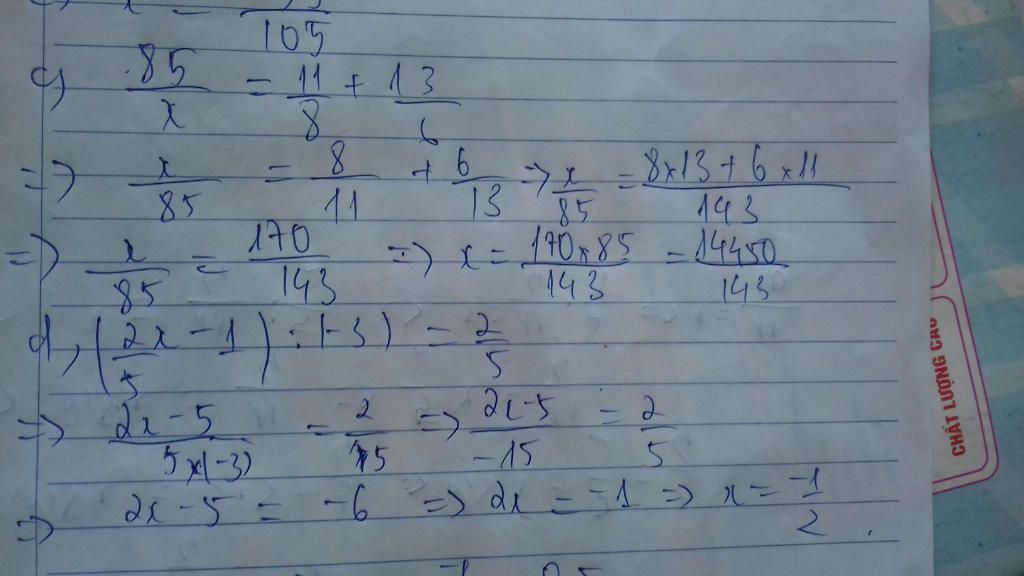 x = /105
c) 85/x = 11/8 + 13/6
=> x/85 = 8/11 + 6/13 => x/85 = (8x13 + 6x11)/143
=> x/85 = 170/143 => x = (170x85)/143 = 14450/143
d, (2/5 x - 1) : (-3) = 2/5
=> (2x-5)/(5x(-3)) = 2/5 => (2x-5)/-15 = 2/5
=> 2x-5 = -6 => 2x = -1 => x = -1/2.
CHẤT LƯỢNG CAO